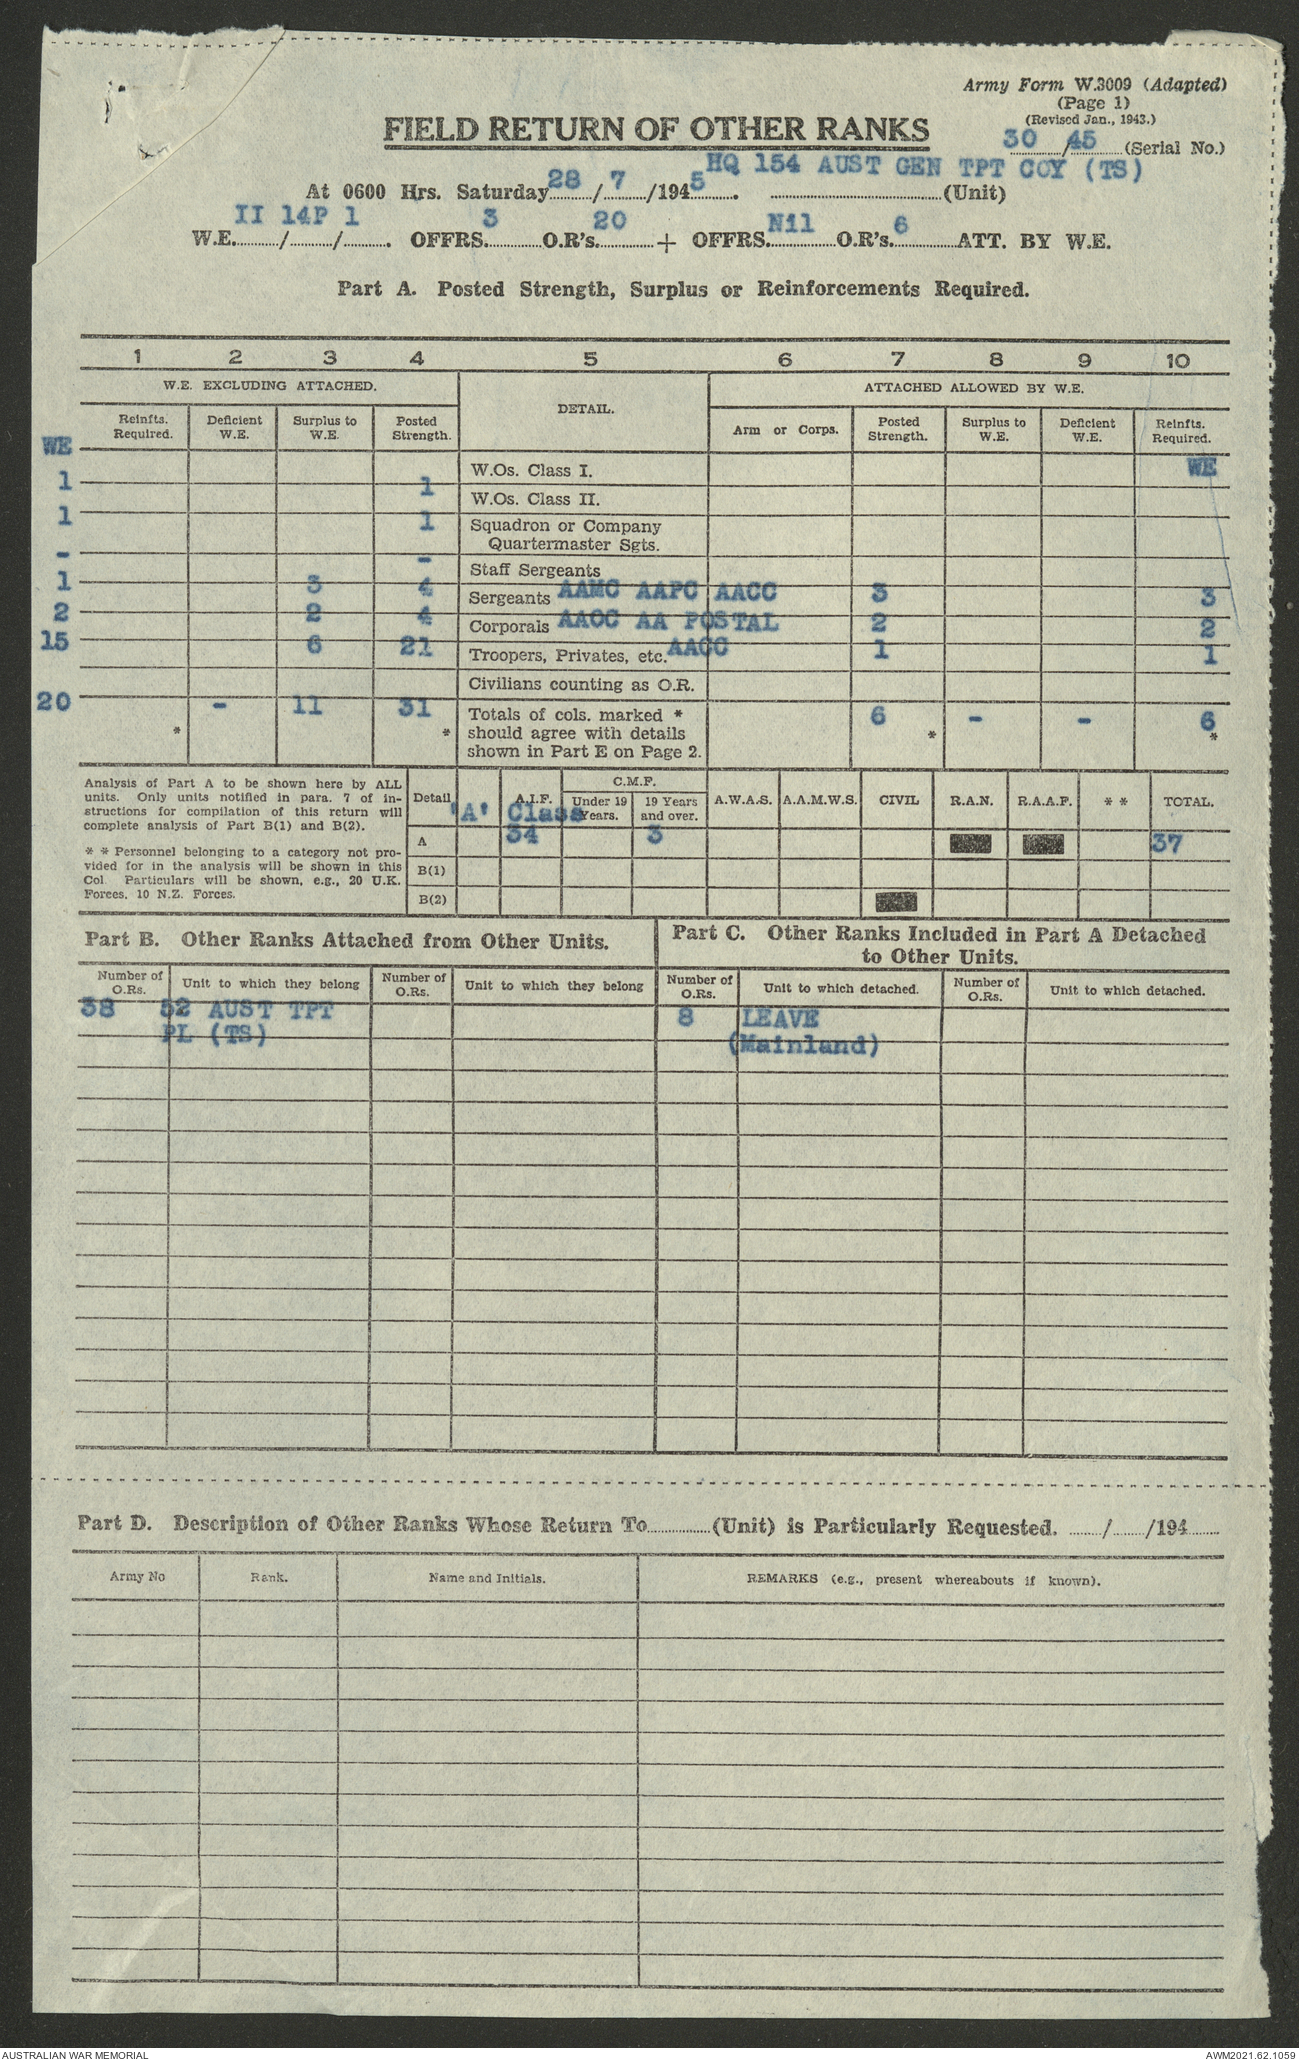 Army Form W.3009 (Adapted)
(Page 1)
(Revised Jan., 1943.)
FIELD RETURN OF OTHER RANKS
30 / 45 (Serial No.)
HQ 154 AUST GEN TPT COY (TS)
At 0600 Hrs. Saturday 28 / 7 /1945. (Unit)
II 14P 1 3 20 Nil 6
W.E. / / . OFFRS. O.R's. + OFFRS. O.R's. ATT. BY W.E.
Part A. Posted Strength, Surplus or Reinforcements Required.
1 2 3 4 5 6 7 8 9 10
W.E. EXCLUDING ATTACHED. DETAIL. ATTACHED ALLOWED BY W.E.
Reinfts. Required. Deficient W.E. Surplus to W.E. Posted Strength. Arm or Corps. Posted Strength. Surplus to W.E. Deficient W.E. Reinfts. Required.
WE W.Os. Class I. WE
1 1 W.Os. Class II.
1 1 Squadron or Company
Quartermaster Sgts.
- - Staff Sergeants
1 3 4 Sergeants AAMC AAPC AACC 3 3
2 2 4 Corporals AAOC AA POSTAL 2 2
15 6 21 Troopers, Privates, etc. AACC 1 1
Civilians counting as O.R.
20 - 11 31 Totals of cols. marked * 6 - - 6
* * should agree with details * *
shown in Part E on Page 2.
Analysis of Part A to be shown here by ALL
units. Only units notified in para. 7 of in-
structions for compilation of this return will
complete analysis of Part B(1) and B(2).
* * Personnel belonging to a category not pro-
vided for in the analysis will be shown in this
Col. Particulars will be shown, e.g., 20 U.K.
Forces, 10 N.Z. Forces.
Detail A.I.F. C.M.F. Under 19 Years. 19 Years and over. A.W.A.S. A.A.M.W.S. CIVIL R.A.N. R.A.A.F. * * TOTAL.
'A' Class
A 34 3 37
B(1)
B(2)
Part B. Other Ranks Attached from Other Units.
Part C. Other Ranks Included in Part A Detached
to Other Units.
Number of O.Rs. Unit to which they belong Number of O.Rs. Unit to which they belong Number of O.Rs. Unit to which detached. Number of O.Rs. Unit to which detached.
38 52 AUST TPT 8 LEAVE
PL (TS) (Mainland)
Part D. Description of Other Ranks Whose Return To (Unit) is Particularly Requested. / /194
Army No Rank. Name and Initials. REMARKS (e.g., present whereabouts if known).
AUSTRALIAN WAR MEMORIAL AWM2021.62.1059